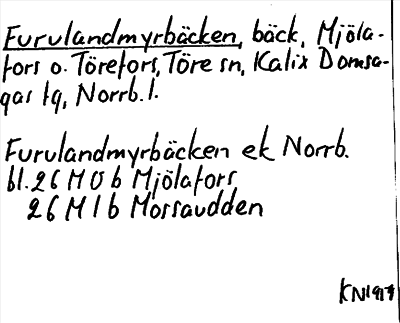 Furulandmyrbäcken, bäck, Mjöla-
fors o. Törefors, Töre sn, Kalix Domsa-
gas tg, Norrb. l.
Furulandmyrbäcken ek Norrb.
bl. 26 M 0 b Mjölafors
26 M 1 b Morsaudden